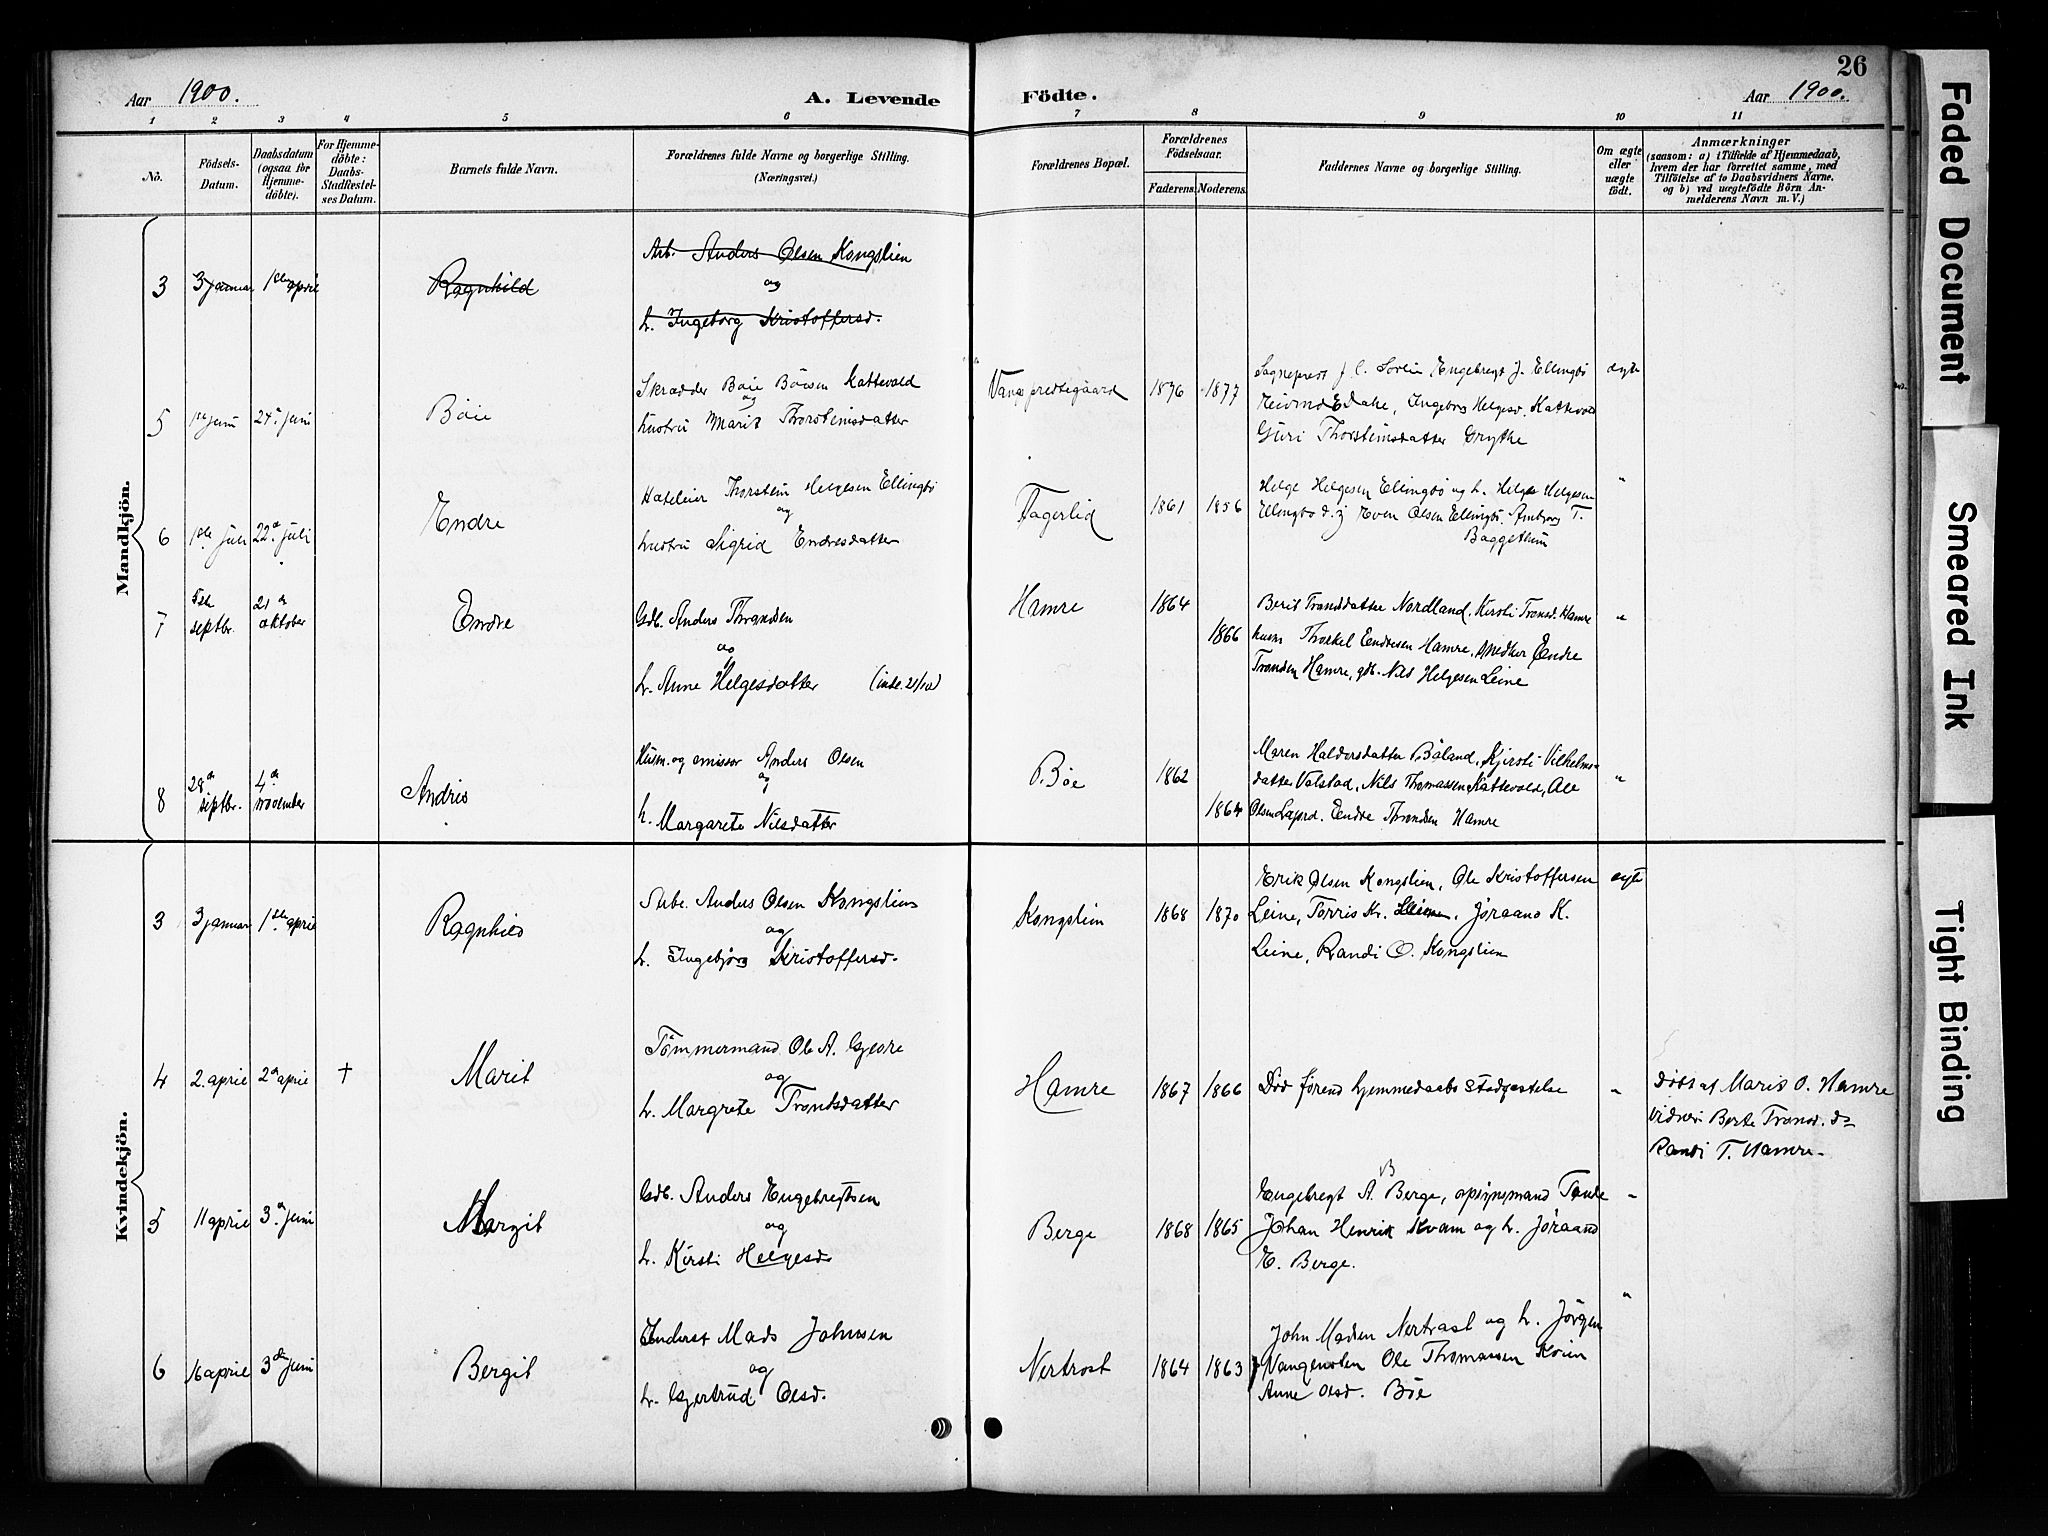 26
Aar 1900.
A. Levende Födte.
Aar 1900.
1 2 3 4 5 6 7 8 9 10 11
No.
Födsels-
Datum.
Daabsdatum
(ogsaa for
Hjemme-
döbte).
For Hjemme-
döbte:
Daabs-
Stadfæstel-
ses Datum.
Barnets fulde Navn.
Forældrenes fulde Navne og borgerlige Stilling.
(Næringsvei.)
Forældrenes Bopæl.
Forældrenes
Födselsaar.
Faderens. Moderens.
Faddernes Navne og borgerlige Stilling.
Om ægte
eller
uægte
født.
Anmærkninger
(saasom: a) i Tilfælde af Hjemmedaab,
hvem der har forrettet samme, med
Tilföielse af to Daabsvidners Navne,
og b) ved uægtefödte Börn An-
melderens Navn m. V.)
Mandkjön.
3 3 januar 1ste april Ragnhild
Arb. Anders Olsen Kongslien
og
h. Ingeborg Kristoffersd.
5 1ste juni 24de juni Bóie
Skrædder Boie Bóisen Kattevold
og
hustru Marit Thorsteinsdatter
Vang prestegaard 1876 1877
Engebregt J. Ellingbó
Eivind E Dahe, Ingebor Helgesd. Kattevold
Guri Thorsteinsdatter Grythe
ægte
6 1ste juli 22de juli Endre
Thorstein Helgesen Ellingbó
og
hustru Sigrid Endresdatter
Fagerlid 1861 1856
Helge Helgesen Ellingbó og h. Helge Helgesen
Ellingbó d. y Even Olsen Ellingbó. Amborg T.
Baggethun
"
7 5te septbr. 21de oktober Endre
Gdb. Anders Throndsen
og
h. Anne Helgesdatter (indt. 21/10)
Hamre 1864 1866
Berit Trondsdatter Nordland, Kirsti Tronsd. Hamre
husm Thorkel Endresen Hamre, snedker Endre
Tronsden Hamre, gdb. Nils Helgesen Leine
"
8 28de septbr. 4de november Andris
Husm. og emissær Anders Olsen
og
h. Margarete Nilsdatter
Bóe 1862 1864
Maren Haldorsdatter Bóland, Kjersti Vilhelms-
datter Valstad, Nils Thomassen Kattevold, Ole
Olsen Endre Throndsen Hamre
"
Kvindekjön.
3 3 januar 1ste april Ragnhild
Arbe. Anders Olsen Kongslien
og
h. Ingebjörg Kristoffersd.
Kongslien 1868 1870
Erik Olsen Kongslien, Ole Kristoffersen
Leine, Torris Kr. Leine, Jóraand K.
Leine, Randi O. Kongslien
ægte
4 2. april 2de april † Marit
Tómmermand Ole A. Gjevre
og
h. Margrete Trondsdatter
Hamre 1867 1866
Död förend hjemmedaabs stadfestelse
"
döbt af Marit O. Hamre
vidner: Berte Tronsd. &
Randi T. Hamre.
5 11 april 3de juni Margit
Gdb. Anders Engebregtsen
og
h. Kirsti Helgesd
Berge 1868 1865
Engebregt A. B Berge, opsynsmand Tande
Johan Henrik Kvam og h. Jóraand
E. Berge.
"
6 16 april 3de juni Bergit
Inderst Mads Johnsen
og
h. Gjertrud Olsd.
Nertrost 1864 1863
John Madsen Nertrast og h. Jörgen
Vangensten Ole Thomassen Kvien
Anne Olsd. Bóe
"
Faded Document
Smeared Ink
Tight Binding